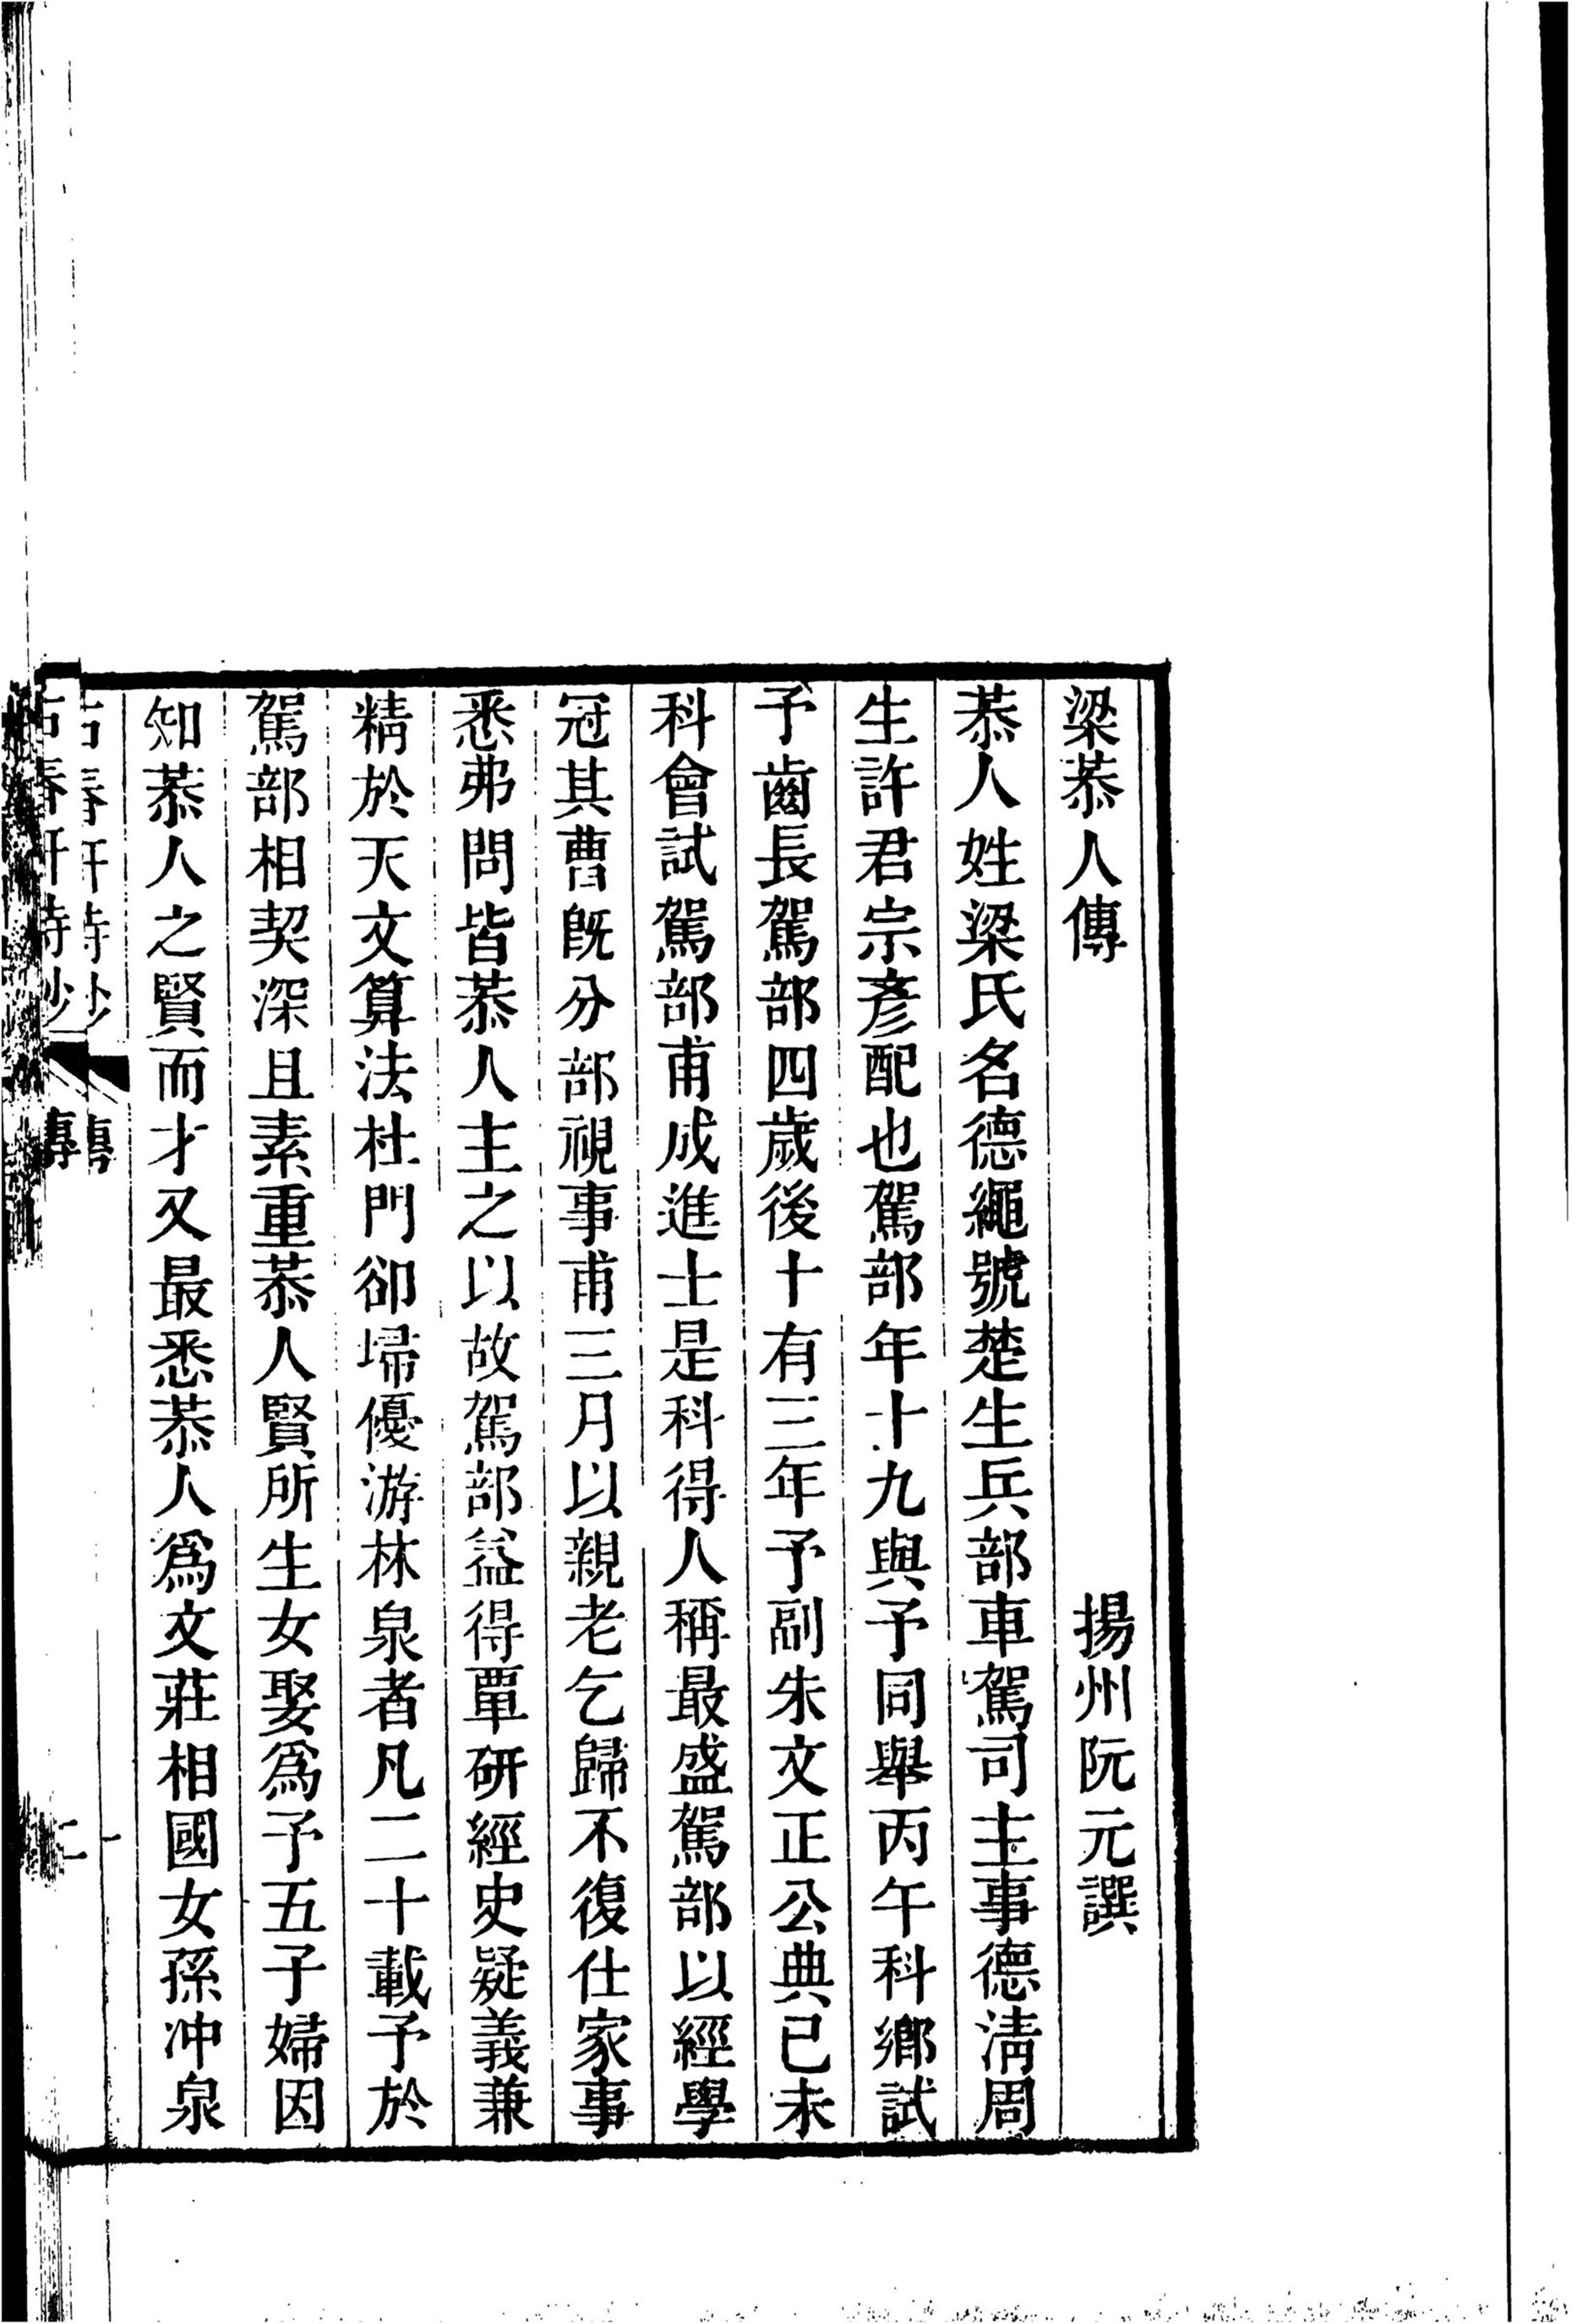 梁恭人傳　揚州阮元譔
恭人姓梁氏名德繩號楚生兵部車駕司主事德淸周
生許君宗彥配也駕部年十九與予同舉丙午科鄉試
予齒長駕部四歲後十有三年予副朱文正公典己未
科會試駕部甫成進士是科得人稱最盛駕部以經學
冠其曹旣分部視事甫三月以親老乞歸不復仕家事
悉弗問皆恭人主之以故駕部益得覃研經史疑義兼
精於天文算法杜門卻埽優游林泉者凡二十載予於
駕部相契深且素重恭人賢所生女娶爲予五子婦因
知恭人之賢而才又最悉恭人爲文莊相國女孫冲泉
古春軒詩鈔　傳　一